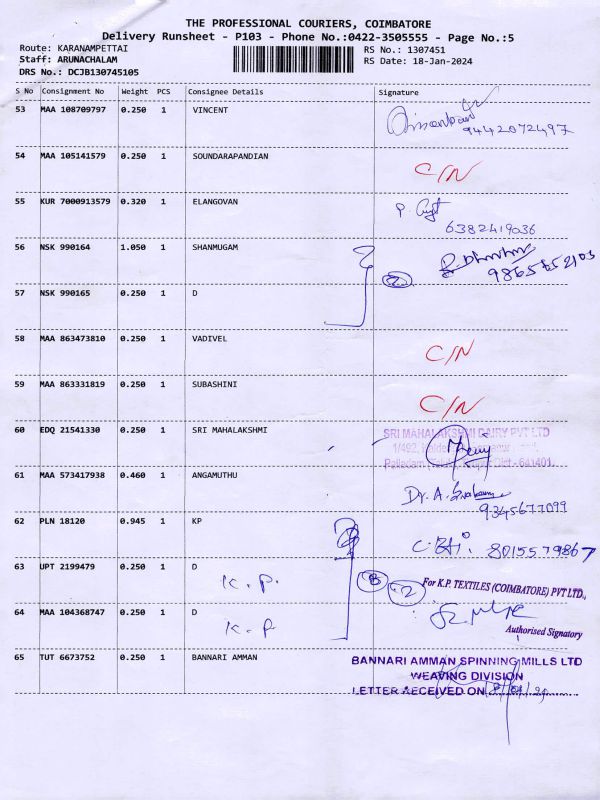 THE PROFESSIONAL COURIERS, COIMBATORE
Delivery Runsheet - P103 - Phone No.:0422-3505555 - Page No.:5
Route: KARANAMPETTAI
RS No.: 1307451
Staff: ARUNACHALAM
RS Date: 18-Jan-2024
DRS No.: DCJB130745105
S No Consignment No Weight PCS Consignee Details Signature
53 MAA 108709797 0.250 1 VINCENT
9442072497
54 MAA 105141579 0.250 1 SOUNDARAPANDIAN C/N
55 KUR 7000913579 0.320 1 ELANGOVAN
6382419036
56 NSK 990164 1.050 1 SHANMUGAM
2
57 NSK 990165 0.250 1 D
58 MAA 863473810 0.250 1 VADIVEL C/N
59 MAA 863331819 0.250 1 SUBASHINI C/N
60 EDQ 21541330 0.250 1 SRI MAHALAKSHMI SRI MAHALAKSHMI DAIRY PVT LTD
61 MAA 573417938 0.460 1 ANGAMUTHU
Dr. A.
9345677099
62 PLN 18120 0.945 1 KP
8015579867
63 UPT 2199479 0.250 1 D K. P.
For K.P. TEXTILES (COIMBATORE) PVT LTD.,
64 MAA 104368747 0.250 1 D K. P
Authorised Signatory
65 TUT 6673752 0.250 1 BANNARI AMMAN BANNARI AMMAN SPINNING MILLS LTD
WEAVING DIVISION
LETTER RECEIVED ON